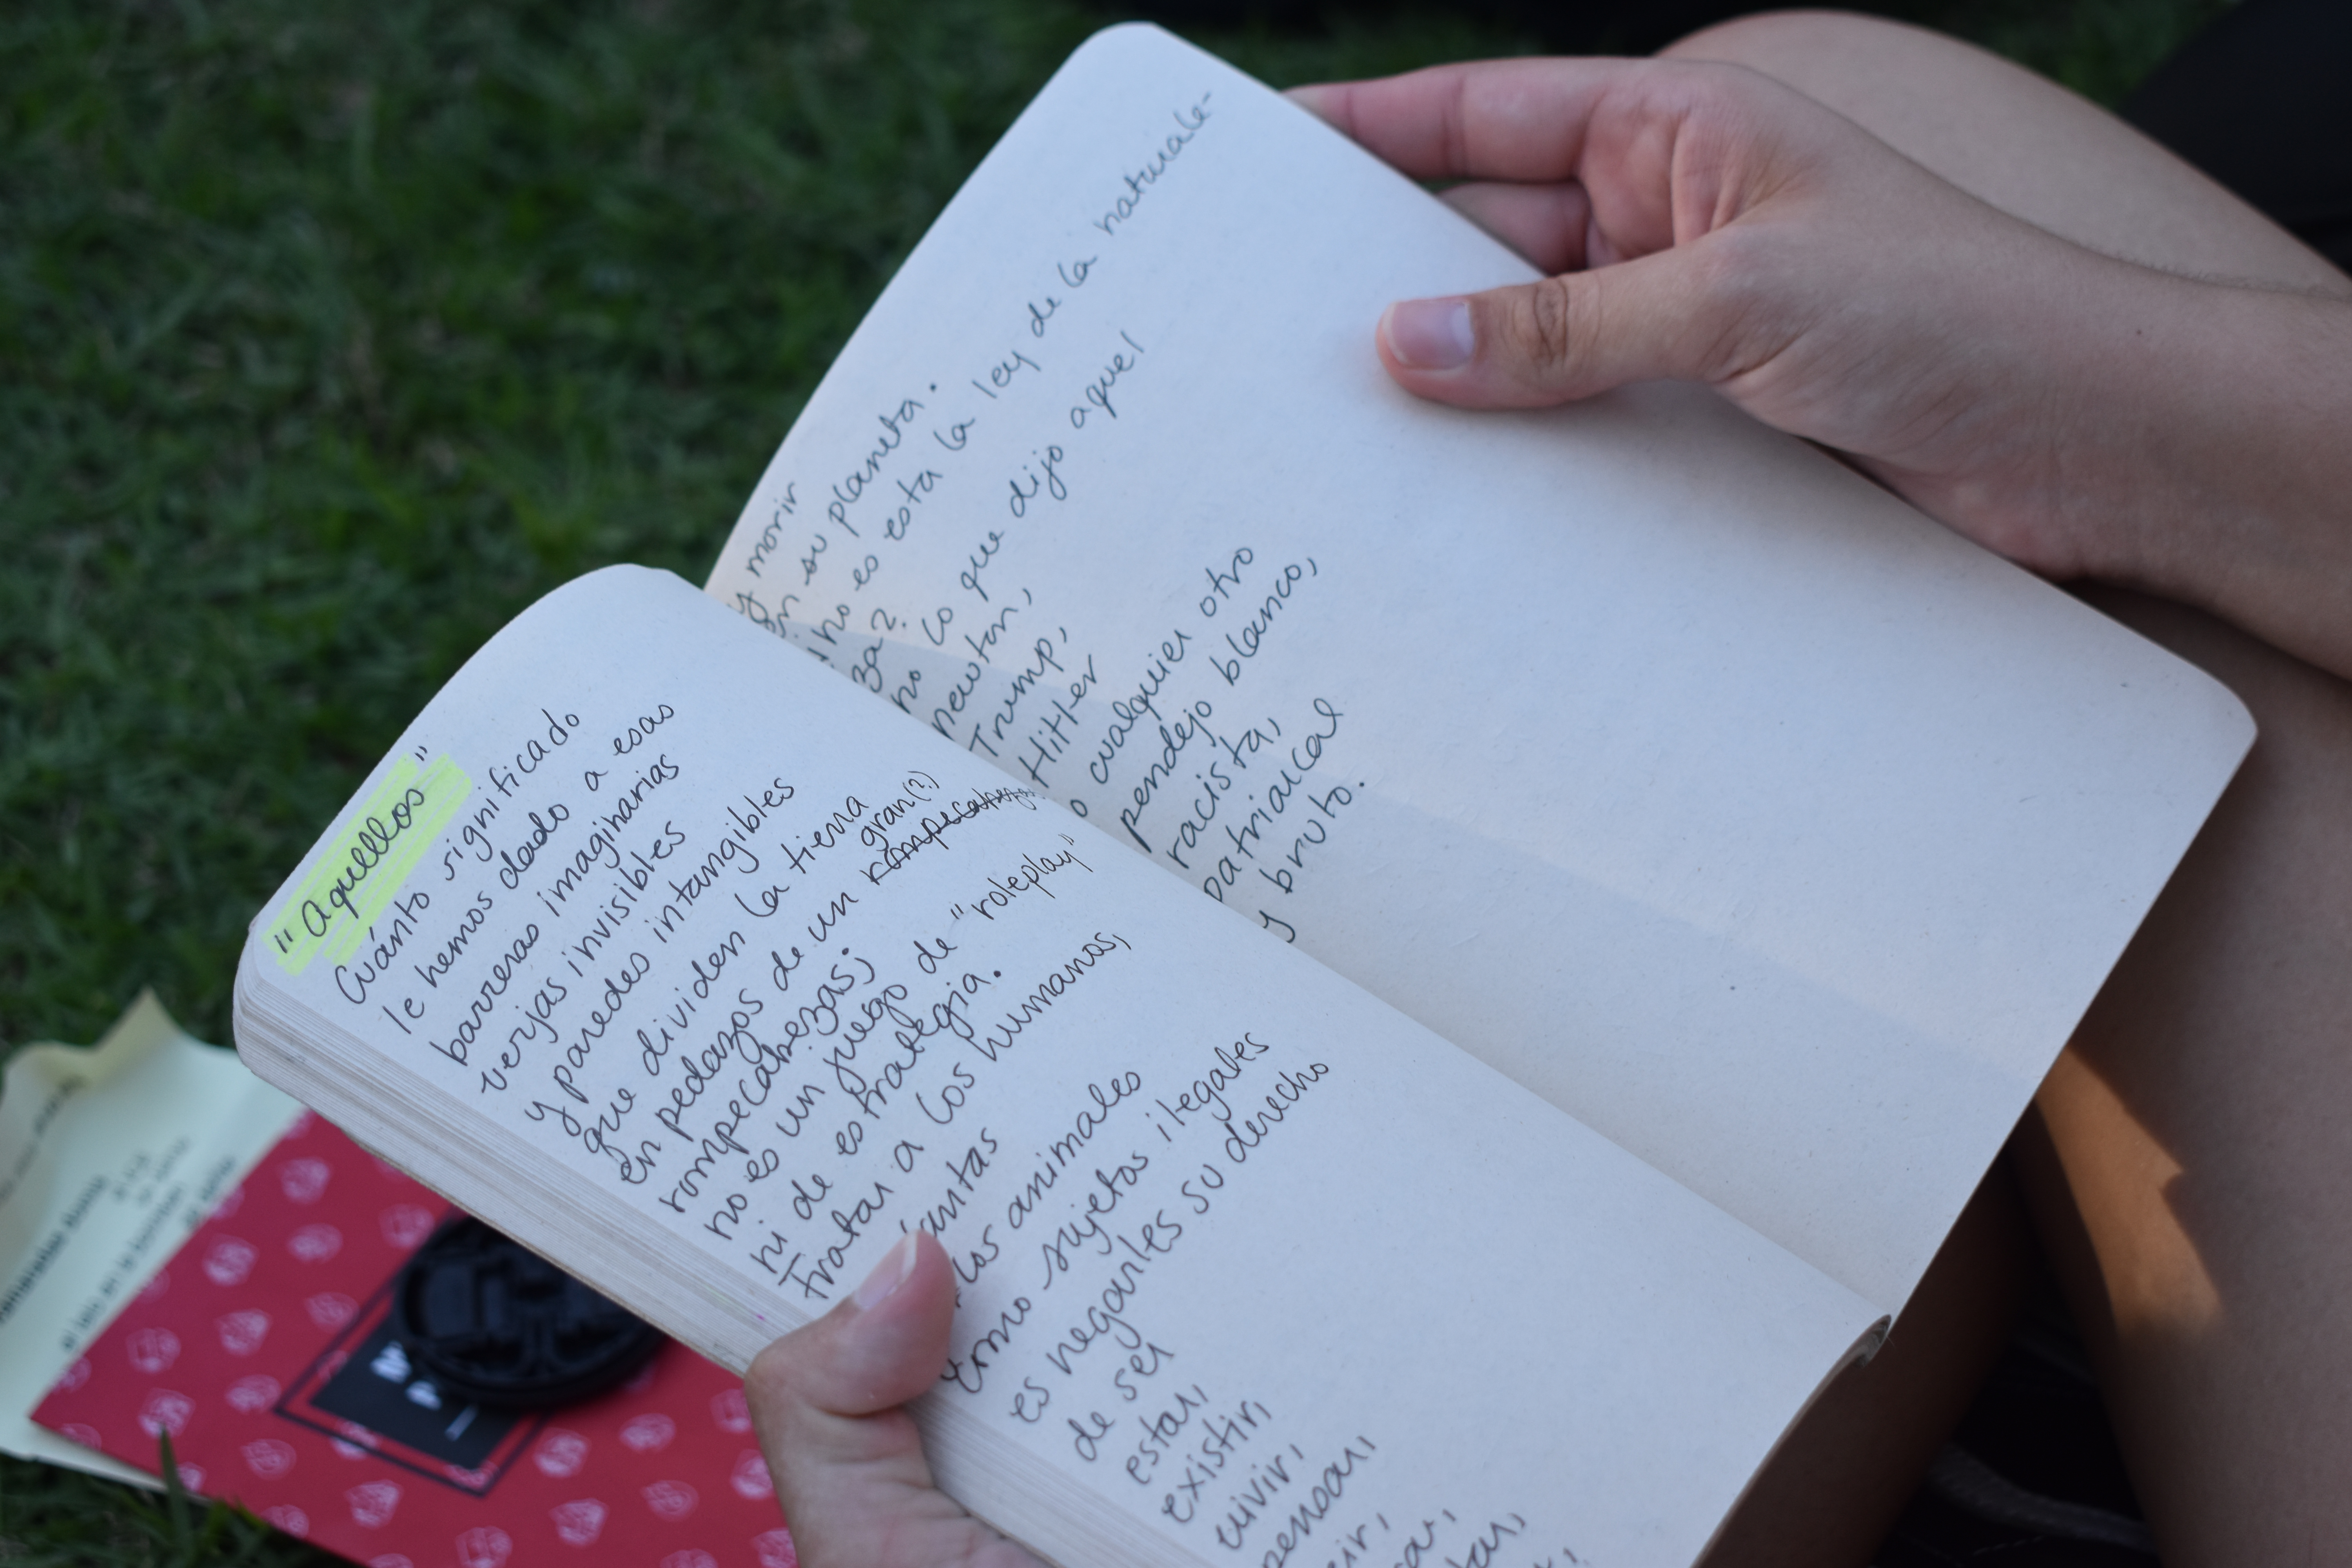 "Aquellos"
Cuánto significado
le hemos dado a esas
barreras imaginarias
verjas invisibles
y paredes intangibles
que dividen la tierra
en pedazos de un gran(?) rompecabezas
rompecabezas;
no es un juego de "roleplay"
ni de estrategia.
Tratar a los humanos,
los animales
como sujetos ilegales
es negarles su derecho
de ser
estar,
existir,
vivir,
pensar,
y morir
en su planeta.
¿no es esta la ley de la naturale-
za?
no lo que dijo aquel
newton,
Trump,
Hitler
o cualquier otro
pendejo blanco,
racista,
patriarcal
y bruto.